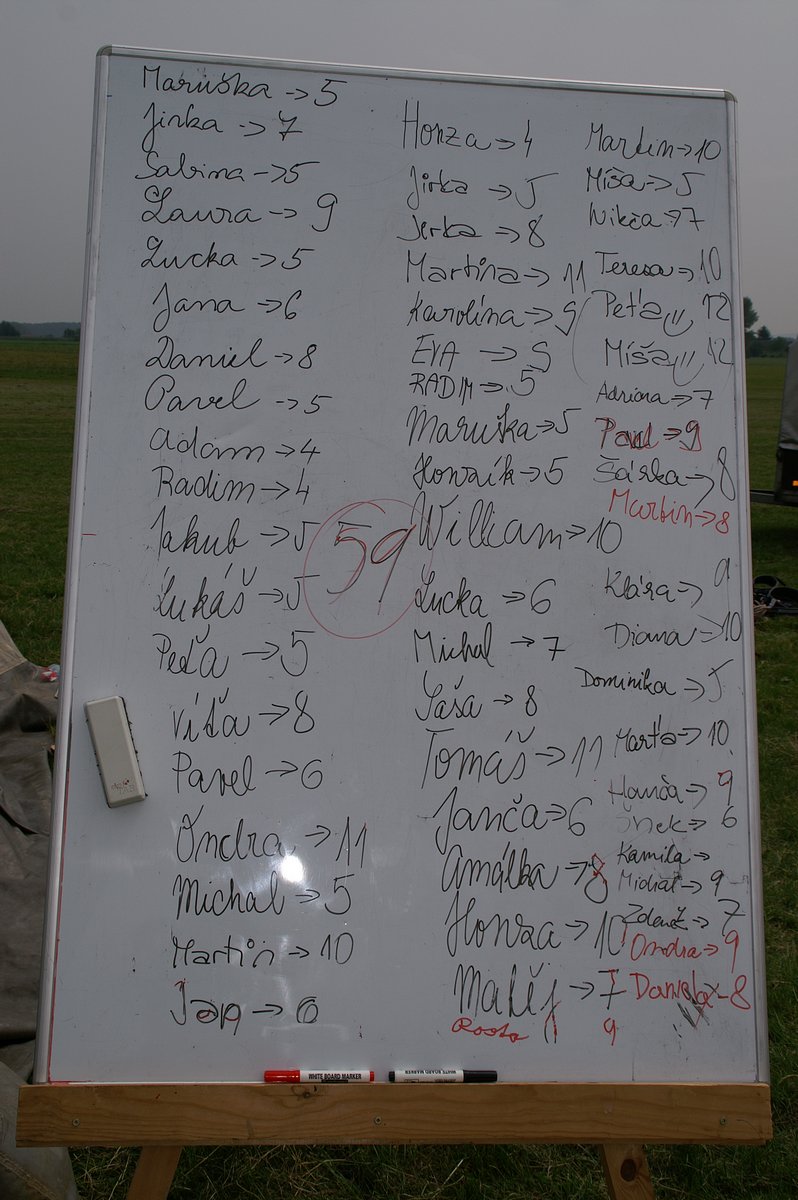 Maruška -> 5
Jirka -> 7
Sabina -> 5
Laura -> 9
Lucka -> 5
Jana -> 6
Daniel -> 8
Pavel -> 5
Adam -> 4
Radim -> 4
Jakub -> 5
Lukáš -> 5
Peťa -> 5
Víťa -> 8
Pavel -> 6
Ondra -> 11
Michal -> 5
Martin -> 10
Jan -> 6
59
Honza -> 4
Jirka -> 5
Jerka -> 8
Martina -> 11
Karolína -> 9
EVA -> 5
RADIM -> 5
Maruška -> 5
Honzík -> 5
William -> 10
Lucka -> 6
Michal -> 7
Sáša -> 8
Tomáš -> 11
Janča -> 6
Amálka -> 8
Honza -> 10
Matěj -> 7
9
Martin -> 10
Míša -> 5
Nikča -> 7
Teresa -> 10
Peťa 12
Míša 12
Adriana -> 7
Pavl -> 9
Šárka -> 8
Martin -> 8
Klára -> 9
Diana -> 10
Dominika -> 5
Marťa -> 10
Hanča -> 9
Šnek -> 6
Kamila ->
Michal -> 9
Zdeněk -> 7
Ondra -> 9
Daniela - 8
WHITE BOARD MARKER
WHITE BOARD MARKER